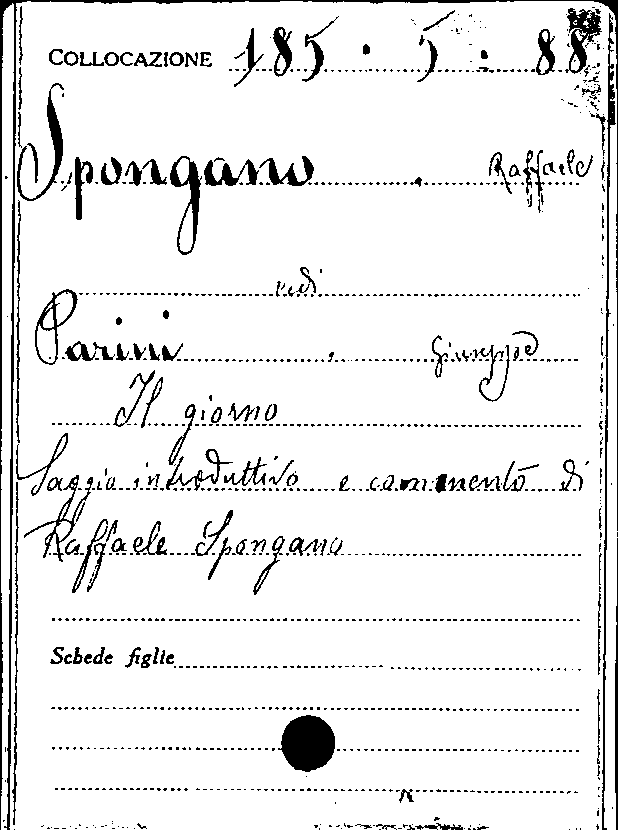 COLLOCAZIONE 185 . 5 . 88
Spongano . Raffaele
vedi
Parini . Giuseppe
Il giorno
Saggio introduttivo e commento di
Raffaele Spongano
Schede figlie